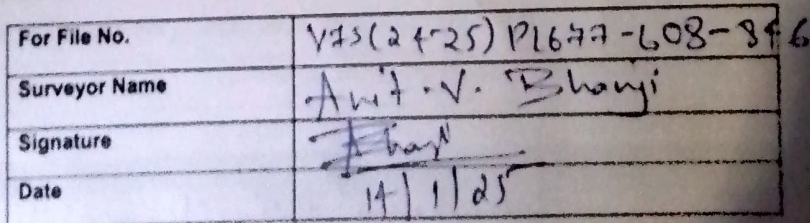 For File No. V73(24-25) PL677-608-846
Surveyor Name Anit. V. Bhanji
Signature
Date 14/1/25